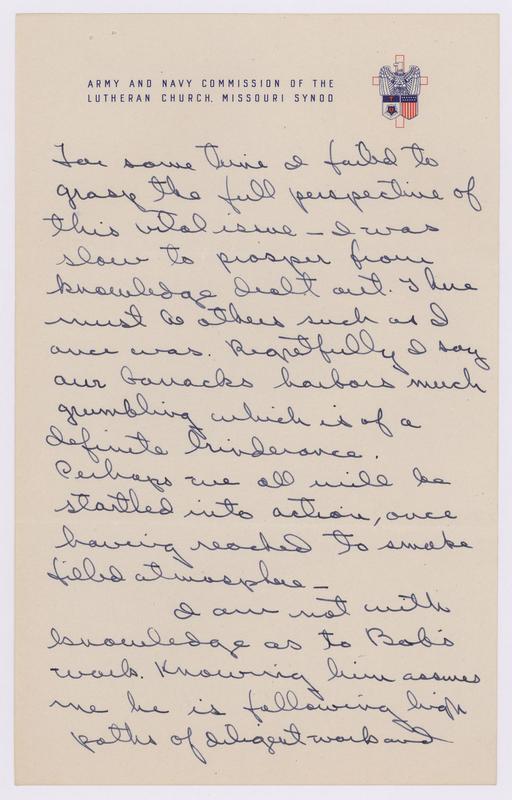 ARMY AND NAVY COMMISSION OF THE
LUTHERAN CHURCH, MISSOURI SYNOD
For some time I failed to
grasp the full perspective of
this vital issue – I was
slow to prosper from
knowledge dealt out. There
must be others such as I
once was. Regretfully I say
our barracks harbors much
grumbling which is of a
definite hinderance.
Perhaps we all will be
startled into action, once
having reached to smoke
filled atmosphere –
I am not with
knowledge as to Bob's
work. Knowing him assures
me he is following high
paths of diligent work and